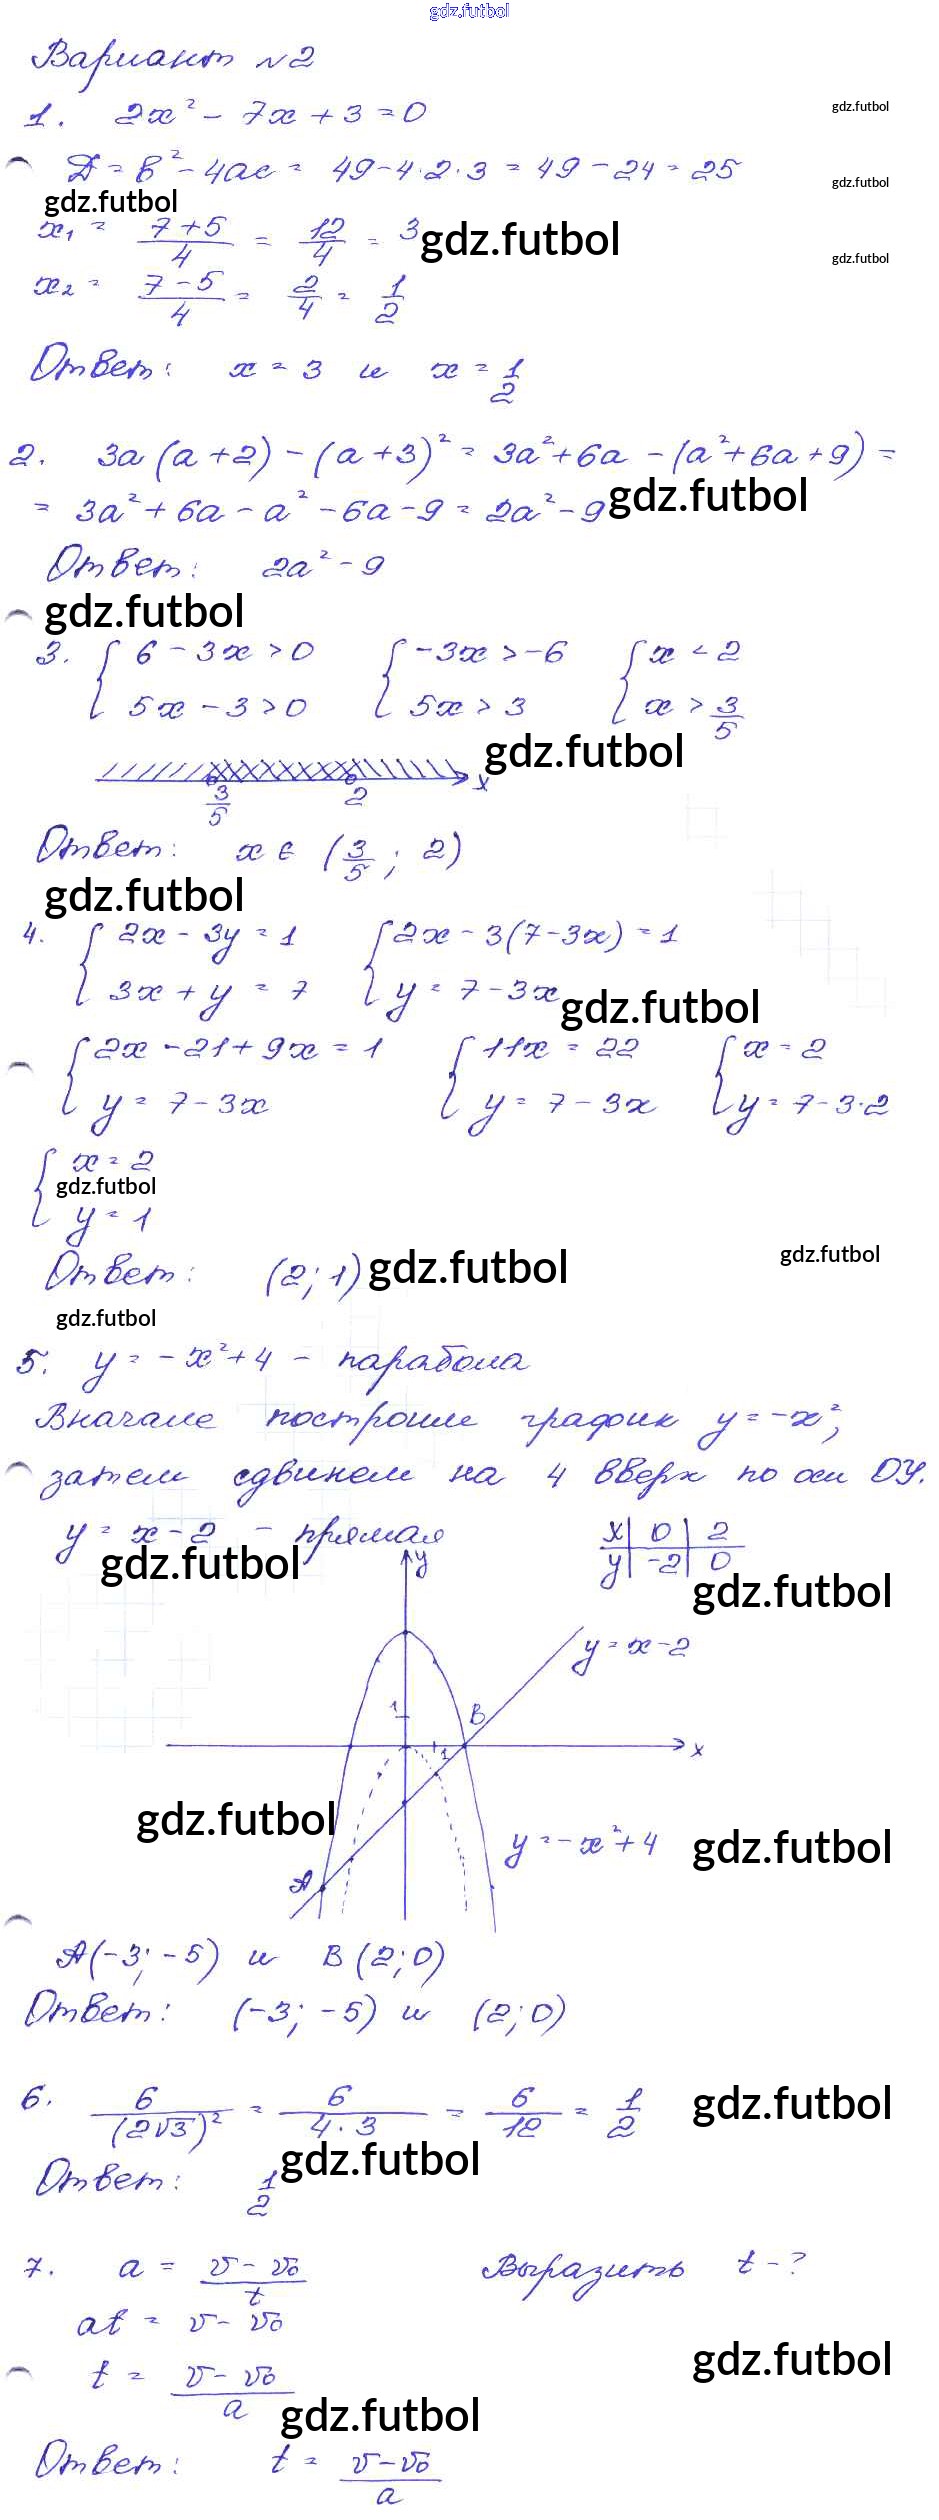 gdz.futbol
Вариант №2
1. 2x² - 7x + 3 = 0
gdz.futbol
D = b² - 4ac = 49 - 4·2·3 = 49 - 24 = 25
gdz.futbol
gdz.futbol
x₁ = (7+5)/4 = 12/4 = 3
gdz.futbol
gdz.futbol
x₂ = (7-5)/4 = 2/4 = 1/2
Ответ: x = 3 и x = 1/2
2. 3a(a+2) - (a+3)² = 3a² + 6a - (a² + 6a + 9) =
= 3a² + 6a - a² - 6a - 9 = 2a² - 9
gdz.futbol
Ответ: 2a² - 9
gdz.futbol
3. { 6 - 3x > 0 { -3x > -6 { x < 2
5x - 3 > 0 5x > 3 x > 3/5
gdz.futbol
3/5 2 x
Ответ: x ∈ (3/5; 2)
gdz.futbol
4. { 2x - 3y = 1 { 2x - 3(7-3x) = 1
3x + y = 7 y = 7 - 3x
gdz.futbol
{ 2x - 21 + 9x = 1 { 11x = 22 { x = 2
y = 7 - 3x y = 7 - 3x y = 7 - 3·2
{ x = 2
gdz.futbol
y = 1
Ответ: (2; 1)
gdz.futbol
gdz.futbol
gdz.futbol
5. y = -x² + 4 - парабола
Вначале построим график y = -x²,
затем сдвинем на 4 вверх по оси OY.
y = x - 2 - прямая
x | 0 | 2
y | -2 | 0
gdz.futbol
gdz.futbol
y
y = x - 2
1 B
1 x
gdz.futbol
y = -x² + 4
gdz.futbol
A
A(-3; -5) и B(2; 0)
Ответ: (-3; -5) и (2; 0)
6. 6/(2√3)² = 6/(4·3) = 6/12 = 1/2
gdz.futbol
Ответ: 1/2
gdz.futbol
7. a = (v - v₀)/t Выразить t - ?
at = v - v₀
gdz.futbol
t = (v - v₀)/a
gdz.futbol
Ответ: t = (v - v₀)/a